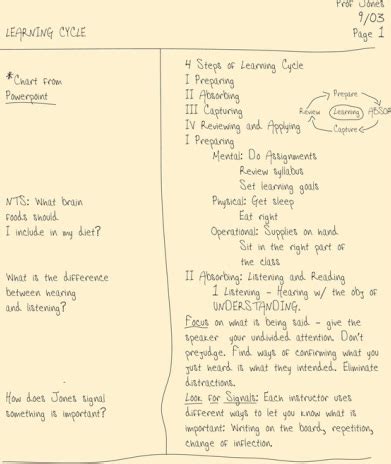 Prof Jones
9/03
LEARNING CYCLE
Page 1
*Chart from
Powerpoint
4 Steps of Learning Cycle
I Preparing
II Absorbing
III Capturing
IV Reviewing and Applying
Prepare
Review
Learning
ABSOR
Capture
I Preparing
Mental: Do Assignments
Review syllabus
Set learning goals
Physical: Get sleep
Eat right
Operational: Supplies on hand
Sit in the right part of
the class
NTS: What brain
foods should
I include in my diet?
What is the difference
between hearing
and listening?
II Absorbing: Listening and Reading
1 Listening - Hearing w/ the obj of
UNDERSTANDING.
Focus on what is being said - give the
speaker your undivided attention. Don't
prejudge. Find ways of confirming what you
just heard is what they intended. Eliminate
distractions.
How does Jones signal
something is important?
Look for Signals: Each instructor uses
different ways to let you know what is
important: Writing on the board, repetition,
change of inflection.